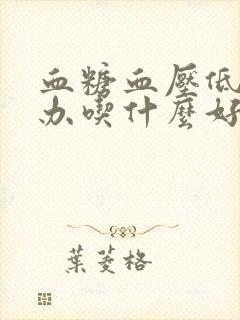 血糖血壓低
办喫什麼好
葉菱格